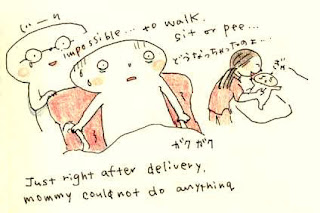 じーっ
impossible... to walk,
sit or pee...
どうなっちゃったのよ...
ぎゅ
ガクガク
Just right after delivery,
mommy could not do anything